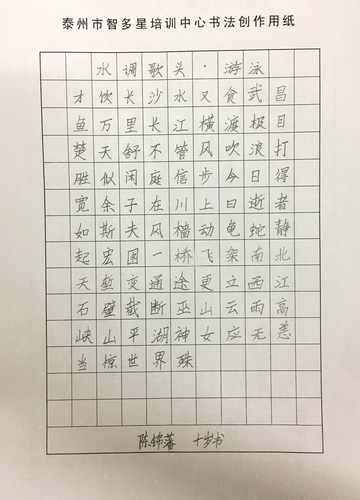 泰州市智多星培训中心书法创作用纸
水调歌头·游泳
才饮长沙水又食武昌
鱼万里长江横渡极目
楚天舒不管风吹浪打
胜似闲庭信步今日得
宽余子在川上曰逝者
如斯夫风樯动龟蛇静
起宏图一桥飞架南北
天堑变通途更立西江
石壁截断巫山云雨高
峡山平湖神女应无恙
当惊世界殊
陈锦藩 十岁书